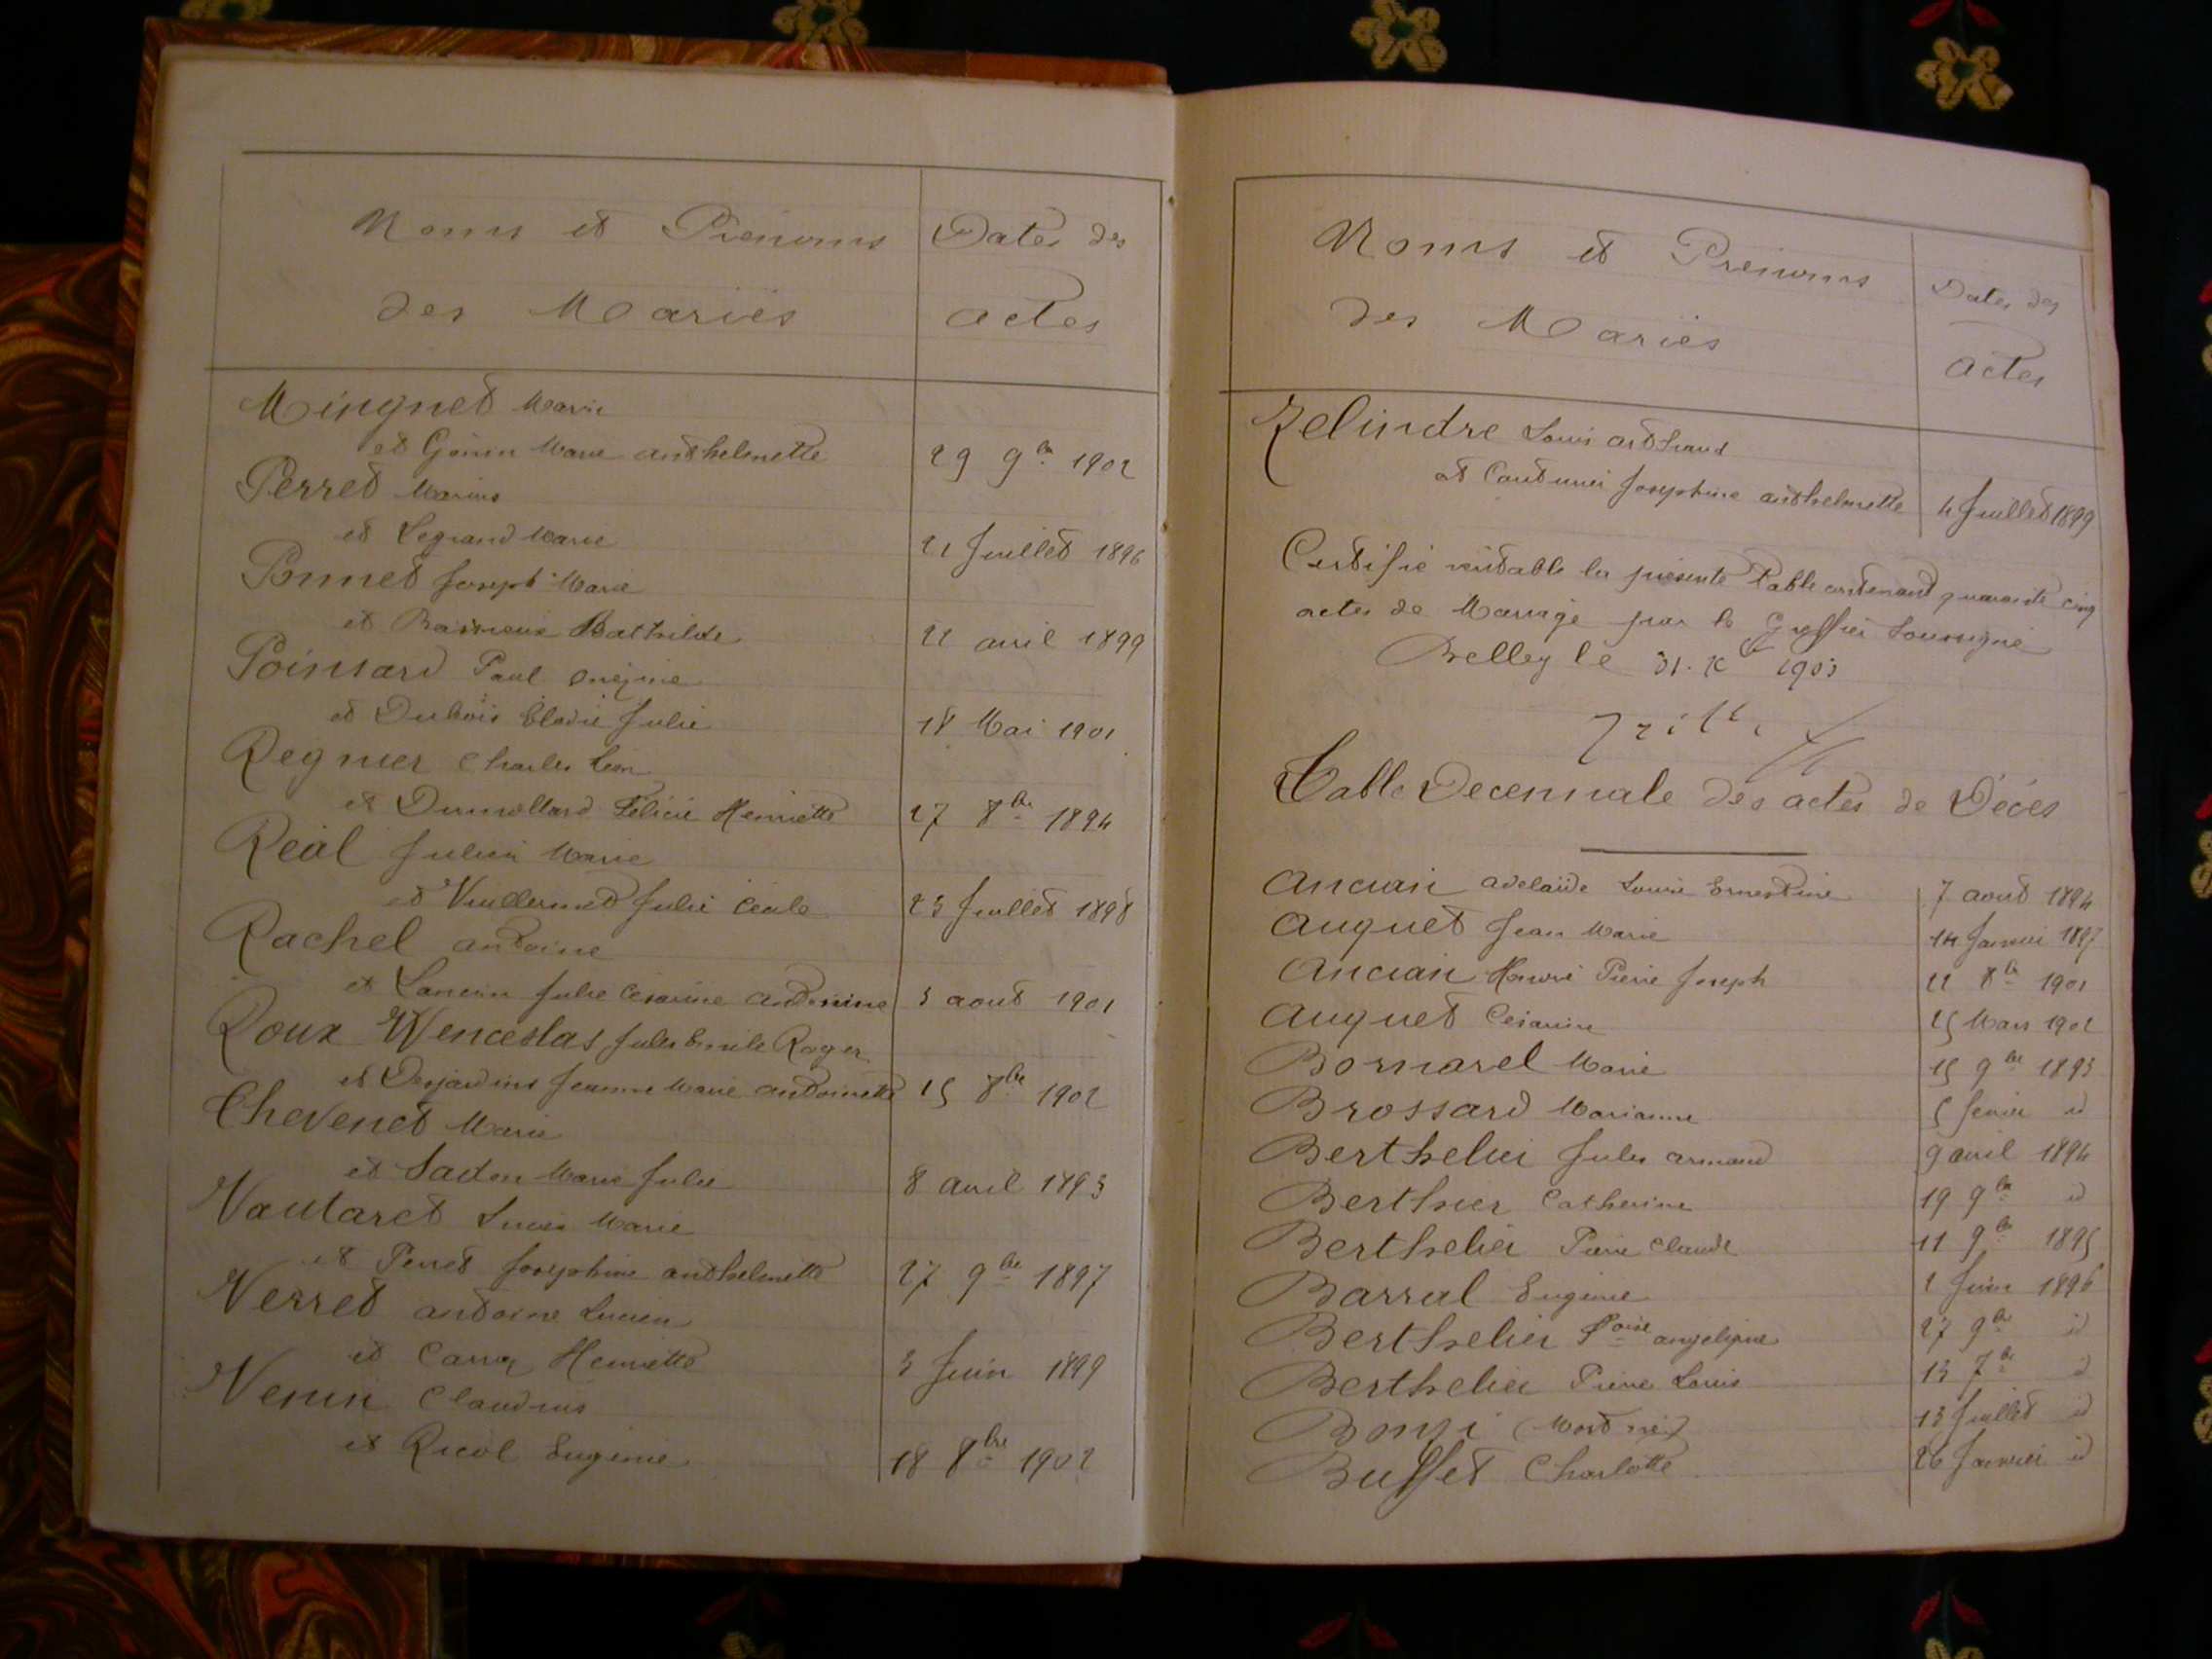 Noms et Prenoms
des Mariés
Dates des
actes
Minguet Marin
et Génin Marie anthelmette
29 9bre 1902
Perret Marius
et Legrand Marie
21 Juillet 1896
Ponnet Joseph Marie
et Bathilde
21 avril 1899
Poinsard Paul onésime
et Dubois Elodie Julie
18 Mai 1901
Regnier Charles Léon
et Dumollard Félicie Henriette
27 8bre 1894
Réal Julien Marie
et Vuillermet Julie Cécile
23 Juillet 1898
Rachel antoine
et Julie Césarine antonine
3 aout 1901
Roux Wenceslas Jules Emile Roger
et Desjardins Jeanne Marie antoinette
15 8bre 1902
Chevenet Marie
et Marie Julie
8 avril 1893
Vautaret Marie
et Perret Josephine anthelmette
27 9bre 1897
Verret antoine Lucien
et Henriette
3 Juin 1899
Venin Claudius
et Ricol Eugénie
18 8bre 1902
Noms et Prenoms
des Mariés
Dates des
actes
Zelindre Louis
et Josephine anthelmette
4 Juillet 1899
Certifié véritable la présente Table contenant quarante cinq
actes de Mariage par le Greffier Soussigné
Belley le 31. Xbre 1903
Table Decennale des actes de Décès
Ancian adelaïde Louise Ernestine
7 aout 1894
Auguet Jean Marie
14 Janvier 1897
Ancian Honoré Pierre Joseph
21 8bre 1901
Auguet Césarine
25 Mars 1902
Bornarel Marie
15 9bre 1893
Brossard Marianne
5 fevrier id
Berthelier Jules armand
9 avril 1894
Berthier Catherine
19 9bre id
Berthelier Pierre Claude
11 9bre 1895
Barral Eugénie
1 Juin 1896
Berthelier Foise angelique
27 9bre id
Berthelier Pierre Louis
13 7bre id
Bonsi (Mort né)
13 Juillet id
Buffet Charlotte
26 Janvier id